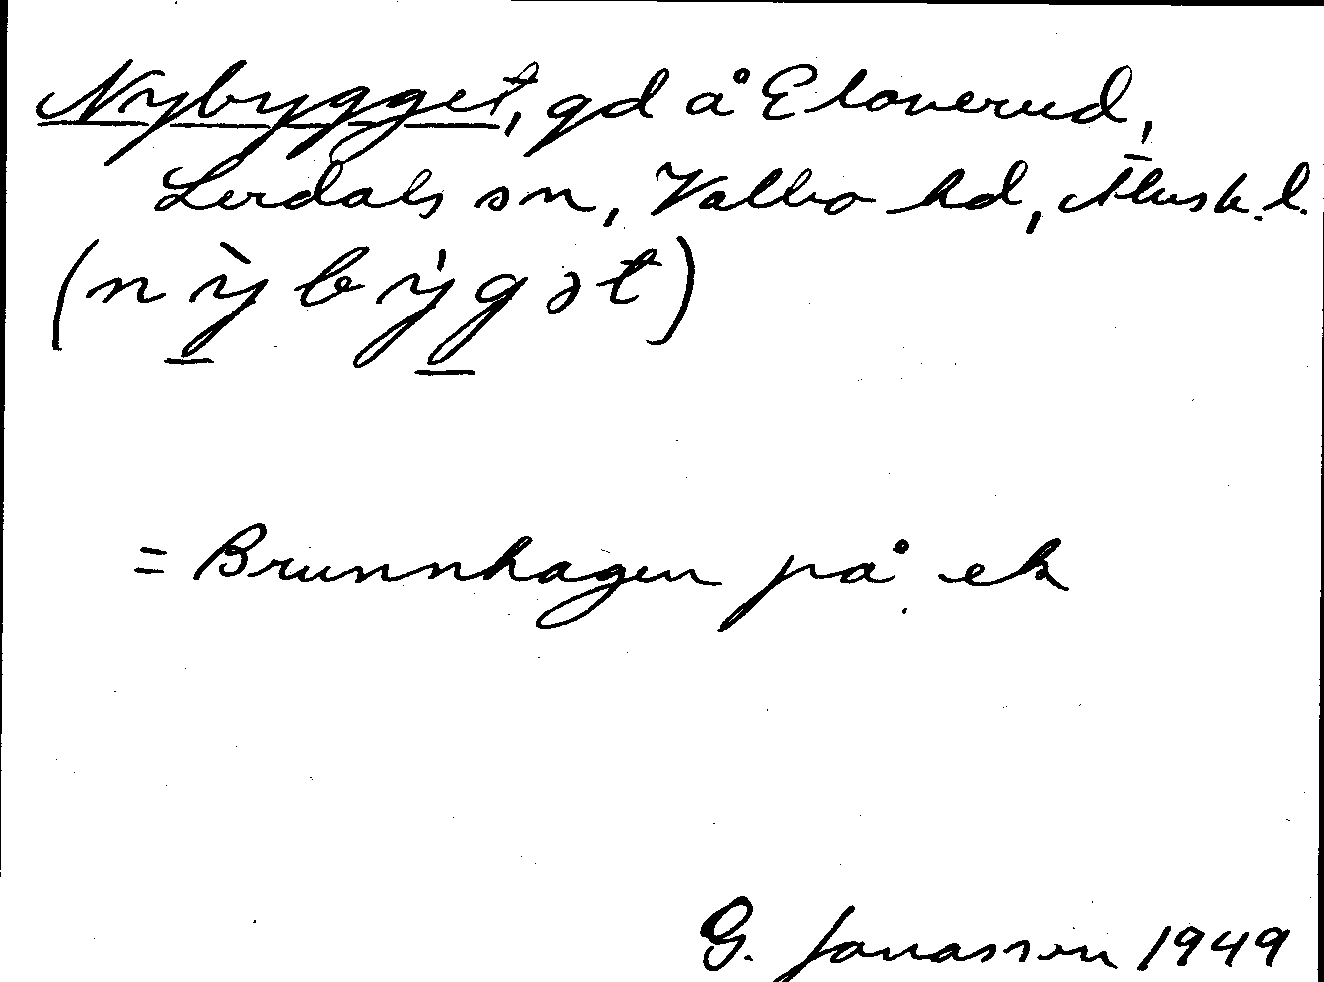 Nybygget, gd å Eloverud,
Lerdals sn, Valbo hd, Älvsb. l.
(nỳbýgət)
= Brunnhagen på ek
G. Jonasson 1949